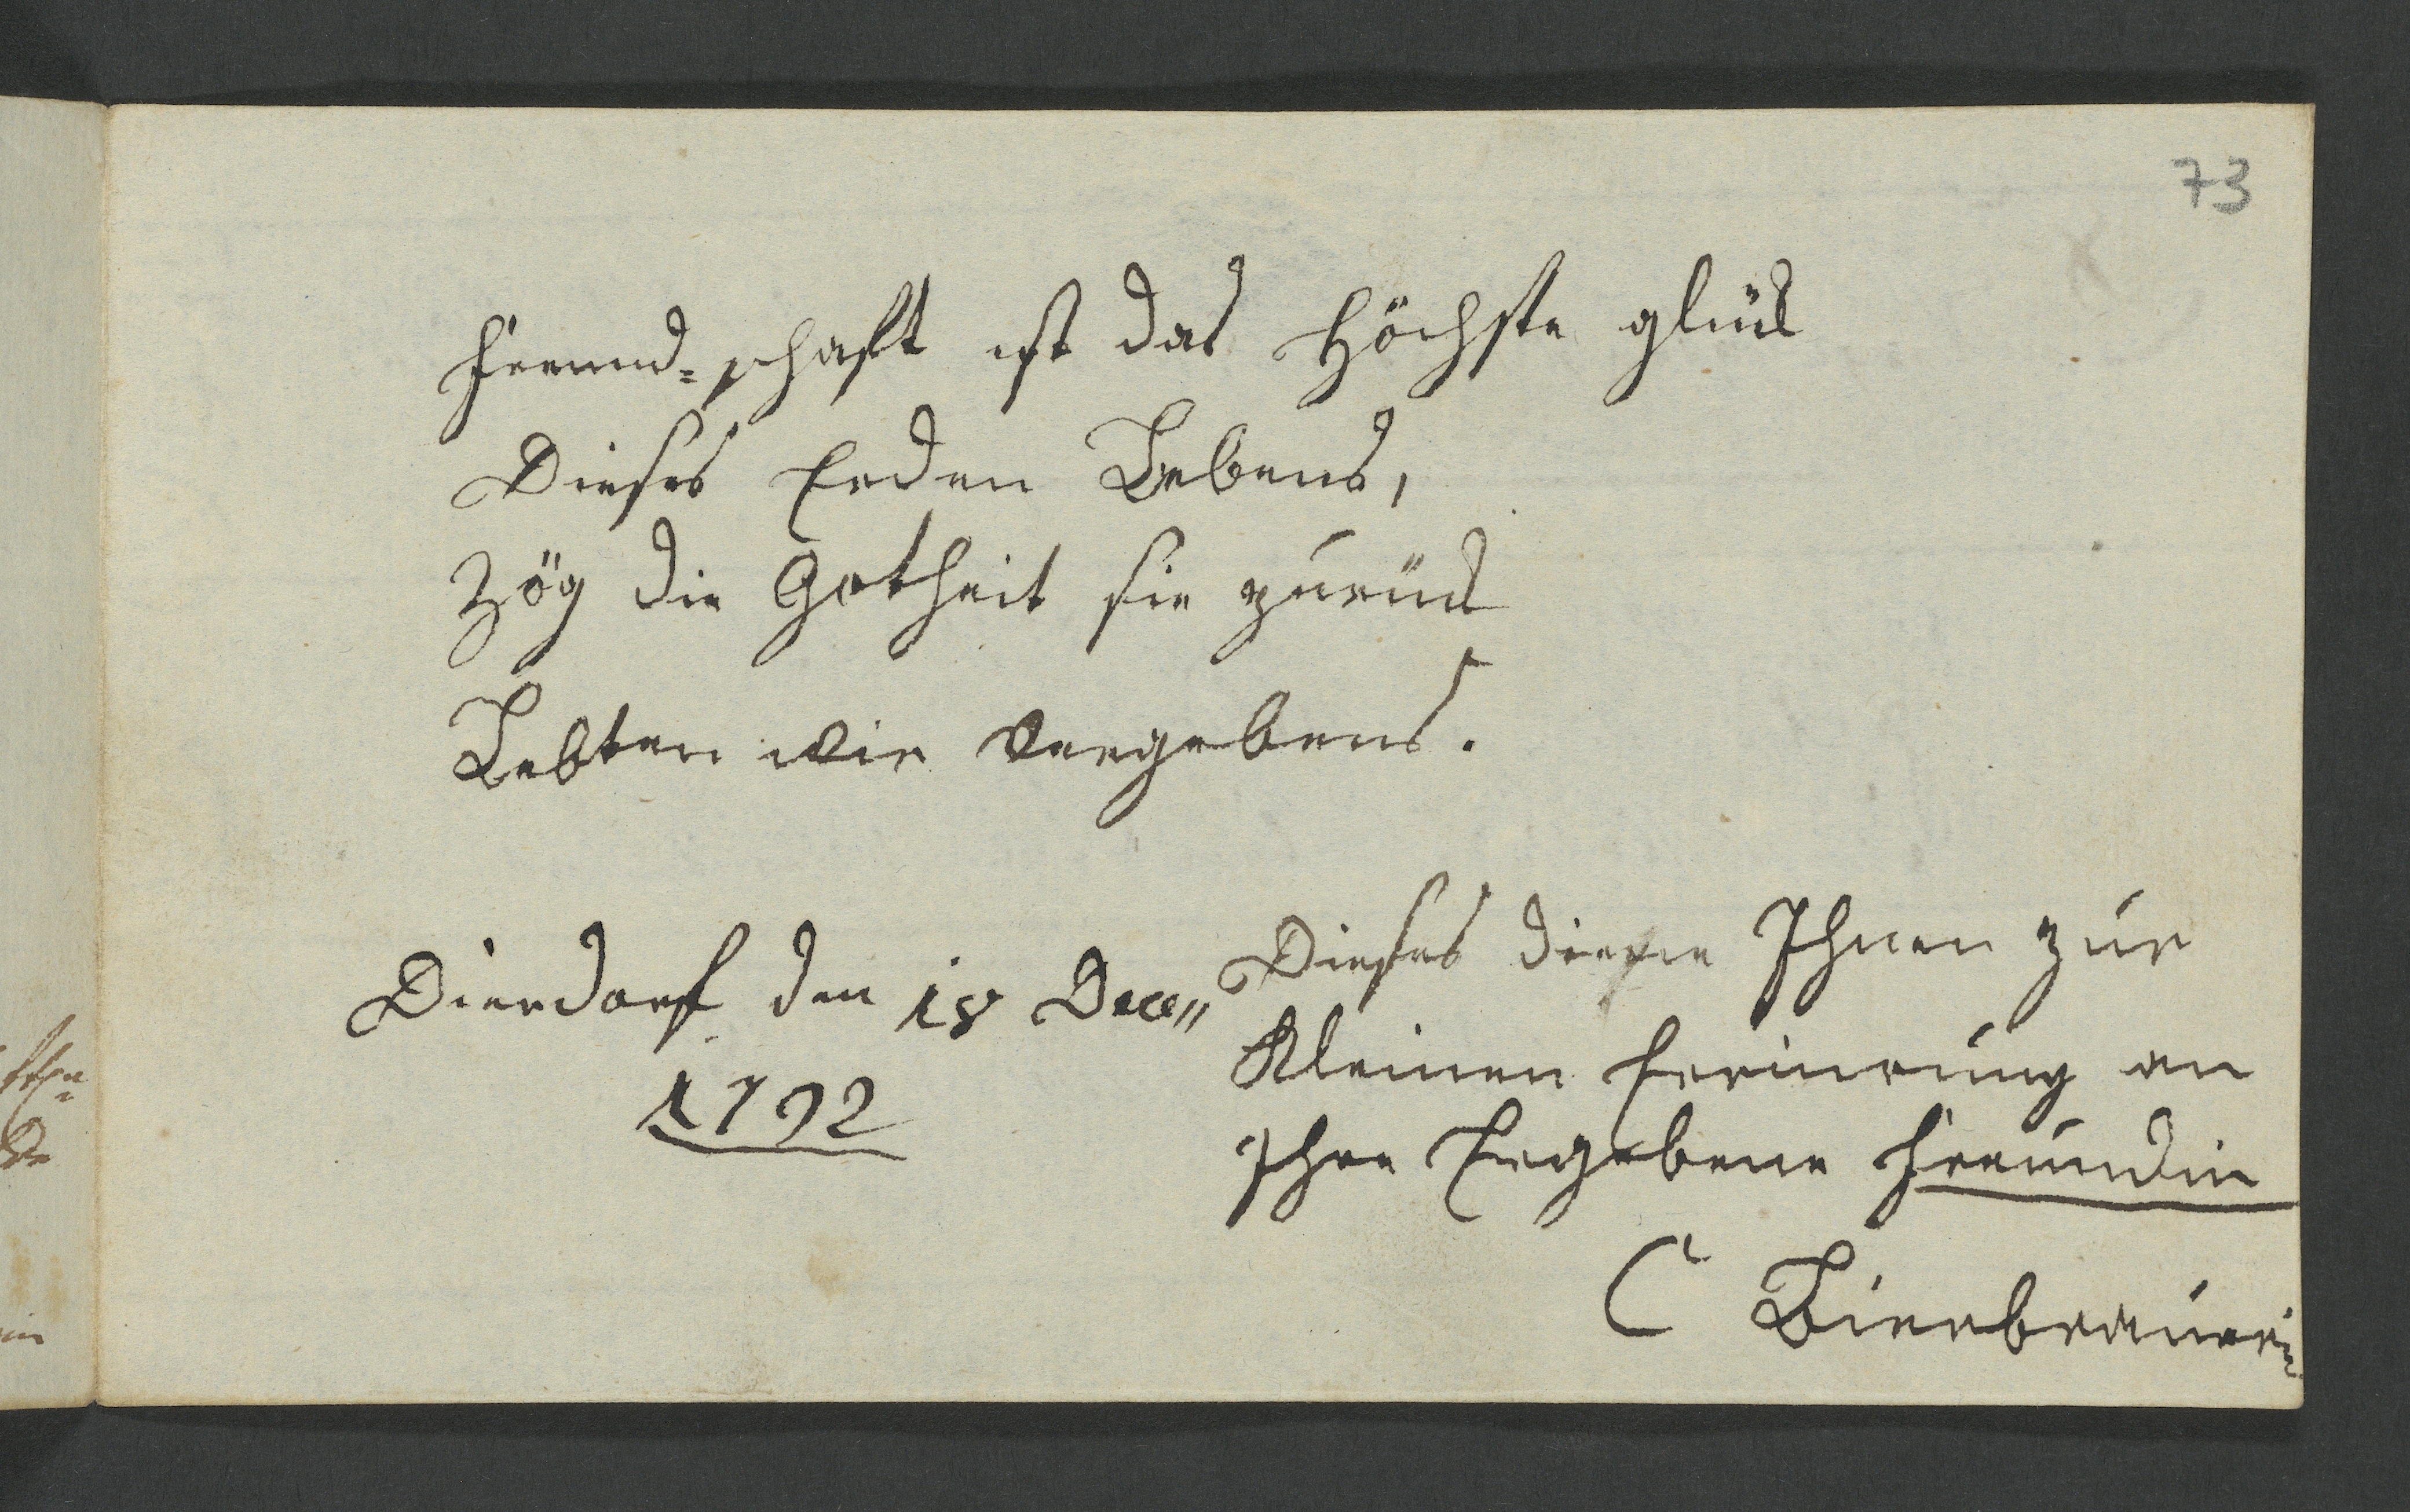 73
Freund=schaft ist das Höchste glük
Dieses Erden Lebens,
Zög die Gotheit sie zurük
Lebten wir vergebens.
Dierdorf den 18 Dece„
1792
Dieses diene Ihnen zur
Kleinen Erinrung an
Ihre Ergebene Freundin
C Bierbrauerin